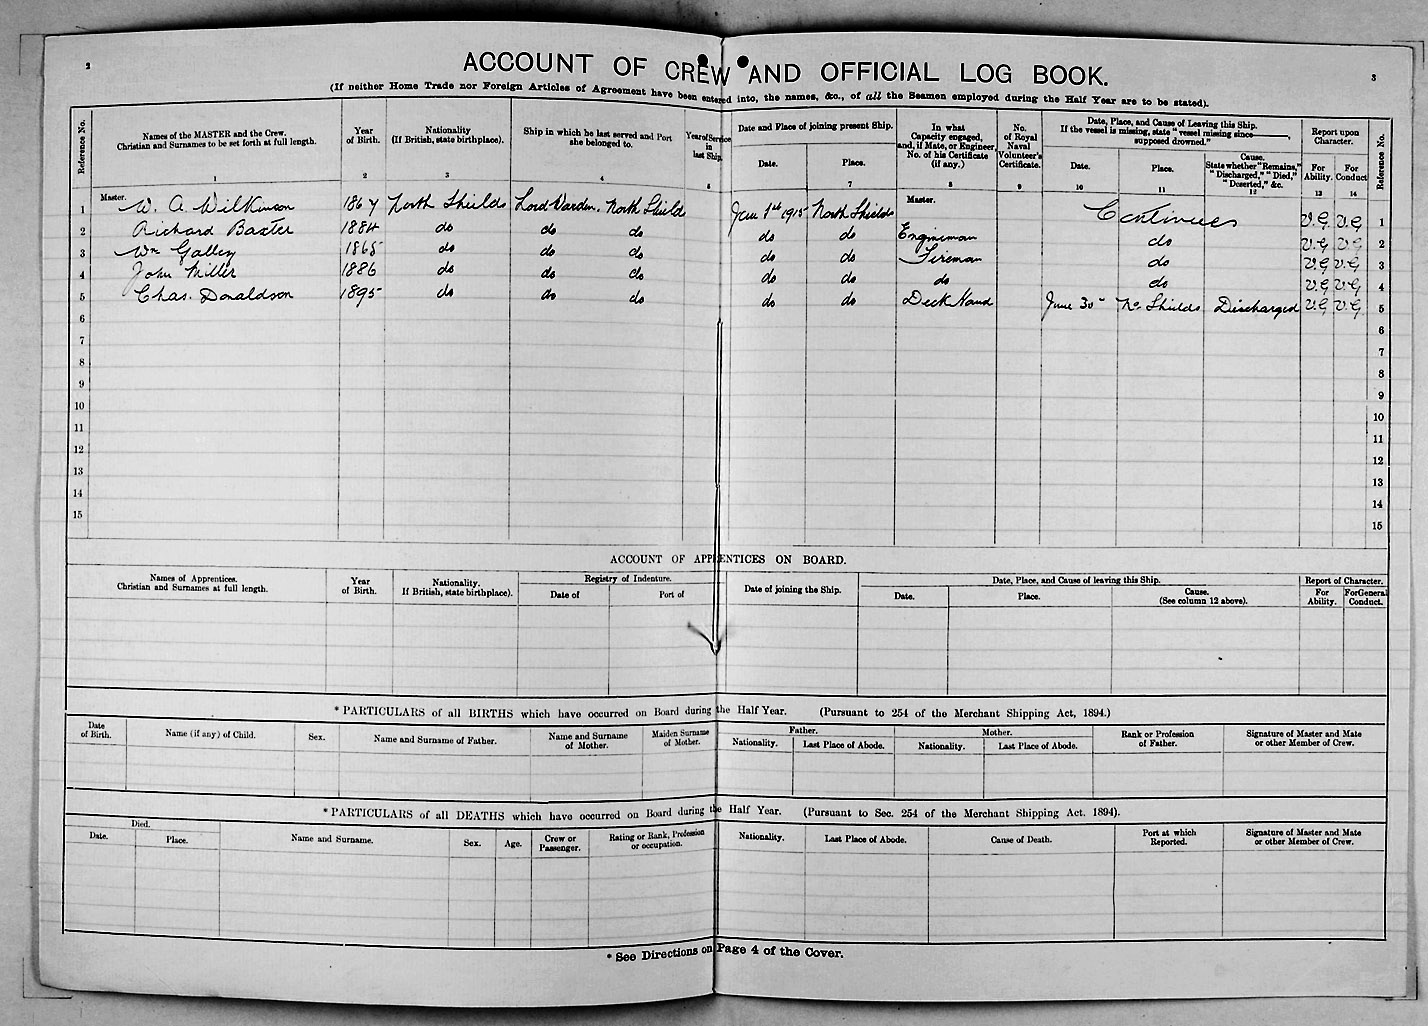 2
3
ACCOUNT OF CREW AND OFFICIAL LOG BOOK.
(If neither Home Trade nor Foreign Articles of Agreement have been entered into, the names, &c., of all the Seamen employed during the Half Year are to be stated).
Reference No.
Names of the MASTER and the Crew.
Christian and Surnames to be set forth at full length.
1
Year
of Birth.
2
Nationality
(If British, state birthplace).
3
Ship in which he last served and Port
she belonged to.
4
Year of Service
in
last Ship.
5
Date and Place of joining present Ship.
Date.
Place.
7
In what
Capacity engaged,
and, if Mate, or Engineer,
No. of his Certificate
(if any.)
8
No.
of Royal
Naval
Volunteer's
Certificate.
9
Date, Place, and Cause of Leaving this Ship.
If the vessel is missing, state "vessel missing since ,
supposed drowned."
Date.
10
Place.
11
Cause.
State whether "Remains,"
"Discharged," "Died,"
"Deserted," &c.
12
Report upon
Character.
For
Ability.
13
For
Conduct
14
Reference No.
1 Master. W. A. Wilkinson 1867 North Shields Lord Warden. North Shields Jan 1st 1915 North Shields Master. Continues V.G V.G 1
2 Richard Baxter 1884 do do do do do Engineman do V.G V.G 2
3 Wm Galley 1865 do do do do do Fireman do V.G V.G 3
4 John Miller 1886 do do do do do do do V.G V.G 4
5 Chas. Donaldson 1895 do do do do do Deck Hand June 30 No. Shields Discharged V.G V.G 5
6 6
7 7
8 8
9 9
10 10
11 11
12 12
13 13
14 14
15 15
ACCOUNT OF APPRENTICES ON BOARD.
Names of Apprentices.
Christian and Surnames at full length.
Year
of Birth.
Nationality.
If British, state birthplace).
Registry of Indenture.
Date of
Port of
Date of joining the Ship.
Date, Place, and Cause of leaving this Ship.
Date.
Place.
Cause.
(See column 12 above).
Report of Character.
For
Ability.
For General
Conduct.
* PARTICULARS of all BIRTHS which have occurred on Board during the Half Year. (Pursuant to 254 of the Merchant Shipping Act, 1894.)
Date
of Birth.
Name (if any) of Child.
Sex.
Name and Surname of Father.
Name and Surname
of Mother.
Maiden Surname
of Mother.
Father.
Nationality.
Last Place of Abode.
Mother.
Nationality.
Last Place of Abode.
Rank or Profession
of Father.
Signature of Master and Mate
or other Member of Crew.
* PARTICULARS of all DEATHS which have occurred on Board during the Half Year. (Pursuant to Sec. 254 of the Merchant Shipping Act. 1894).
Died.
Date.
Place.
Name and Surname.
Sex.
Age.
Crew or
Passenger.
Rating or Rank, Profession
or occupation.
Nationality.
Last Place of Abode.
Cause of Death.
Port at which
Reported.
Signature of Master and Mate
or other Member of Crew.
* See Directions on Page 4 of the Cover.